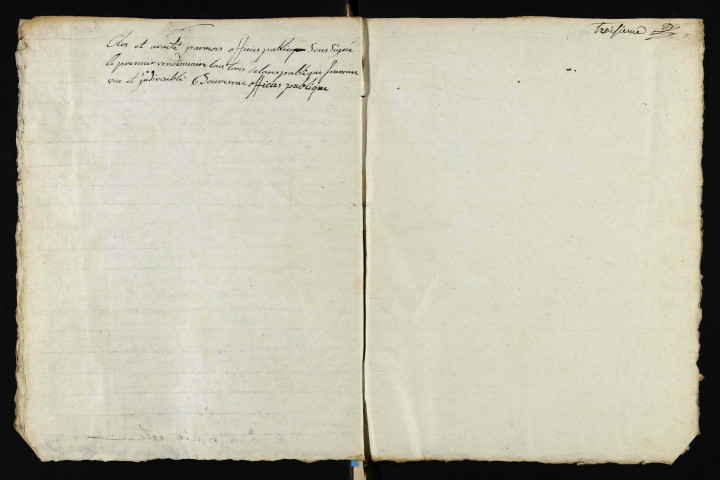 Clos et arreté parmois officier publiq Soussigné
le premier vendemiaire lan trois delarepublique francaise
une et jndivisible Bouverene officier publique
troisieme